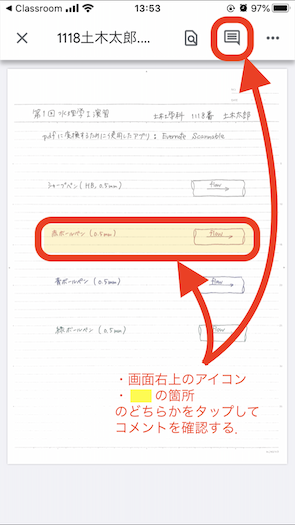 Classroom 13:53 97%
1118土木太郎....
第1回 水理学I演習 土木工学科 1118番 土木太郎
pdfに変換するために使用したアプリ：Evernote Scannable
シャープペン（HB, 0.5mm） flow
赤ボールペン（0.5mm） flow
青ボールペン（0.5mm） flow
緑ボールペン（0.5mm） flow
・画面右上のアイコン
・ の箇所
のどちらかをタップして
コメントを確認する.